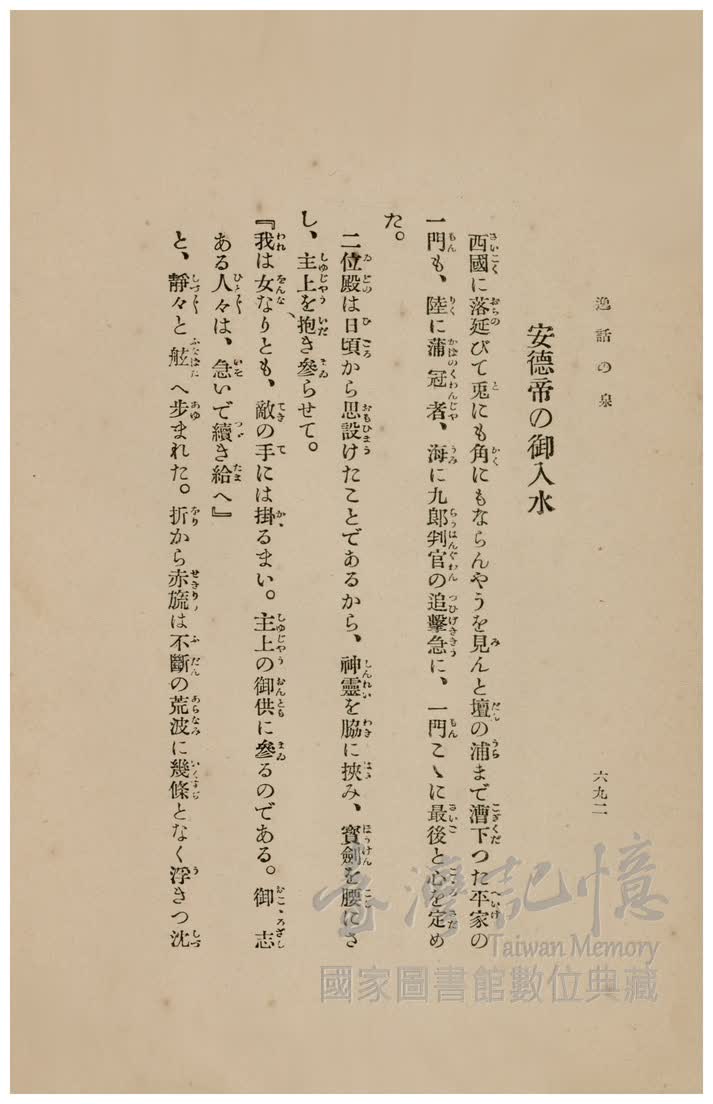 逸話の泉
六九二
安德帝の御入水
西國に落延びて兎にも角にもならんやうを見んと壇の浦まで漕下つた平家の
一門も、陸に蒲冠者、海に九郎判官の追擊急に、一門こゝに最後と心を定め
た。
二位殿は日頃から思設けたことであるから、神靈を脇に挾み、寶劍を腰にさ
し、主上を抱き參らせて。
『我は女なりとも、敵の手には掛るまい。主上の御供に參るのである。御志
ある人々は、急いで續き給へ』
と、靜々と舷へ步まれた。折から赤旒は不斷の荒波に幾條となく浮きつ沈
臺灣記憶
Taiwan Memory
國家圖書館數位典藏